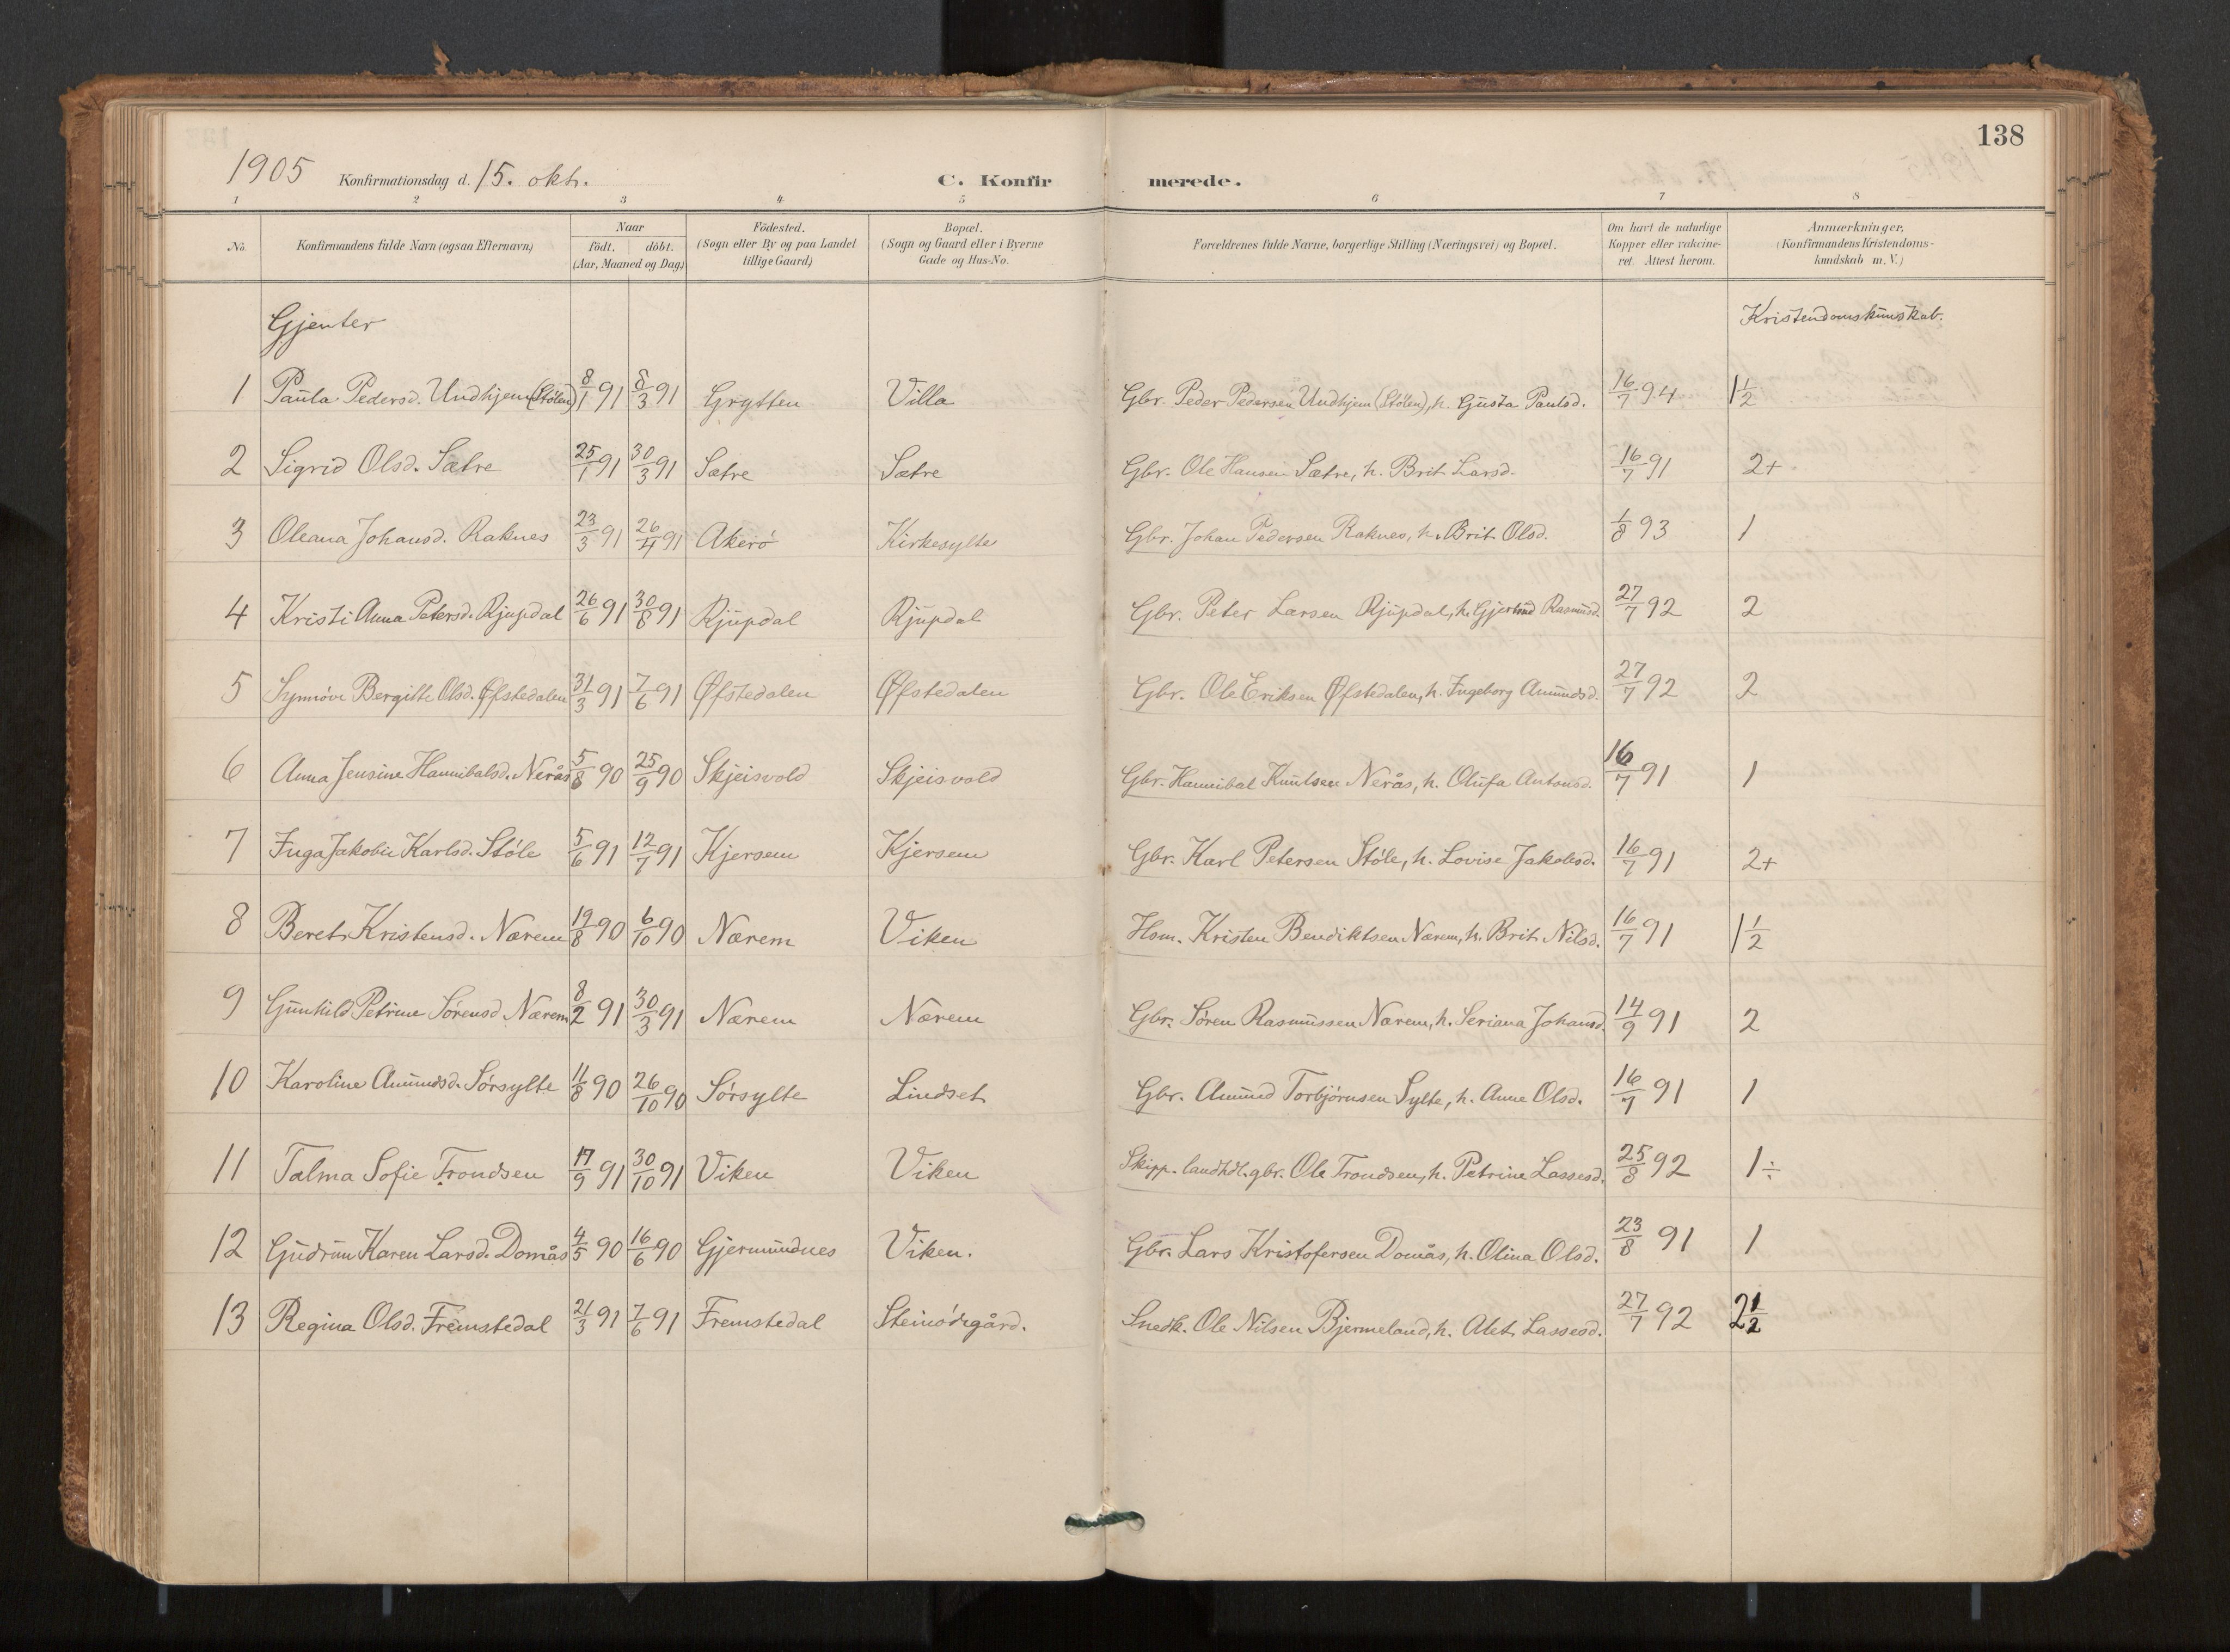 138
1905 Konfirmationsdag d. 15. okt. C. Konfirmerede.
1 2 3 4 5 6 7 8
No. Konfirmandens fulde Navn (ogsaa Efternavn) Naar födt. döbt. (Aar, Maaned og Dag) Födested. (Sogn eller By og paa Landet tillige Gaard) Bopæl. (Sogn og Gaard eller i Byerne Gade og Hus-No. Forældrenes fulde Navne, borgerlige Stilling (Næringsvei) og Bopæl. Om havt de naturlige Kopper eller vakcineret. Attest herom. Anmærkninger, (Konfirmandens Kristendomskundskab m. V.)
Gjenter Kristendomskunskab.
1 Paula Pedersd. Undhjem (Stölen) 8/1 91 8/3 91 Grytten Villa Gbr. Peder Pedersen Undhjem (Stölen), h. Gusta Paulsd. 16/7 94 1 1/2
2 Sigrid Olsd. Sætre 25/1 91 30/3 91 Sætre Sætre Gbr. Ole Hansen Sætre, h. Brit Larsd. 16/7 91 2+
3 Oleana Johansd. Raknes 23/3 91 26/4 91 Akerö Kirkesylte Gbr. Johan Pedersen Raknes, h. Brit Olsd. 1/8 93 1
4 Kristi Anna Petersd. Rjupdal 26/6 91 30/8 91 Rjupdal Rjupdal Gbr. Peter Larsen Rjupdal, h. Gjertrud Rasmusd. 27/7 92 2
5 Synnöve Bergitte Olsd. Øfstedalen 31/3 91 7/6 91 Øfstedalen Øfstedalen Gbr. Ole Eriksen Øfstedalen, h. Ingeborg Amundsd. 27/7 92 2
6 Anna Jensine Hannibalsd. Nerås 5/8 90 25/9 90 Skjeisvold Skjeisvold Gbr. Hannibal Knutsen Nerås, h. Olufa Antonsd. 16/7 91 1
7 Inga Jakobie Karlsd. Stöle 5/6 91 12/7 91 Kjersem Kjersem Gbr. Karl Petersen Stöle, h. Lovise Jakobsd. 16/7 91 2+
8 Beret Kristensd. Nærem 19/8 90 6/10 90 Nærem Viken Hsm. Kristen Bendiktsen Nærem, h. Brit Nilsd. 16/7 91 1 1/2
9 Gunhild Petrine Sörensd Nærem 8/2 91 30/3 91 Nærem Nærem Gbr. Sören Rasmussen Nærem, h. Seriana Johansd. 14/9 91 2
10 Karoline Amundsd. Sörsylte 11/8 90 26/10 90 Sörsylte Lindset Gbr. Amund Torbjörnsen Sylte, h. Anne Olsd. 16/7 91 1
11 Talma Sofie Trondsen 17/9 91 30/10 91 Viken Viken Skipp. landhdl. gbr. Ole Trondsen, h. Petrine Lassesd. 25/8 92 1÷
12 Gudrun Karen Larsd. Domås 4/5 90 16/6 90 Gjermundnes Viken. Gbr. Lars Kristofersen Domås, h. Olina Olsd. 23/8 91 1
13 Regina Olsd. Fremstedal 21/3 91 7/6 91 Fremstedal Steinödegård. Snedk. Ole Nilsen Bjermeland, h. Alet Lassesd. 27/7 92 2 1/2